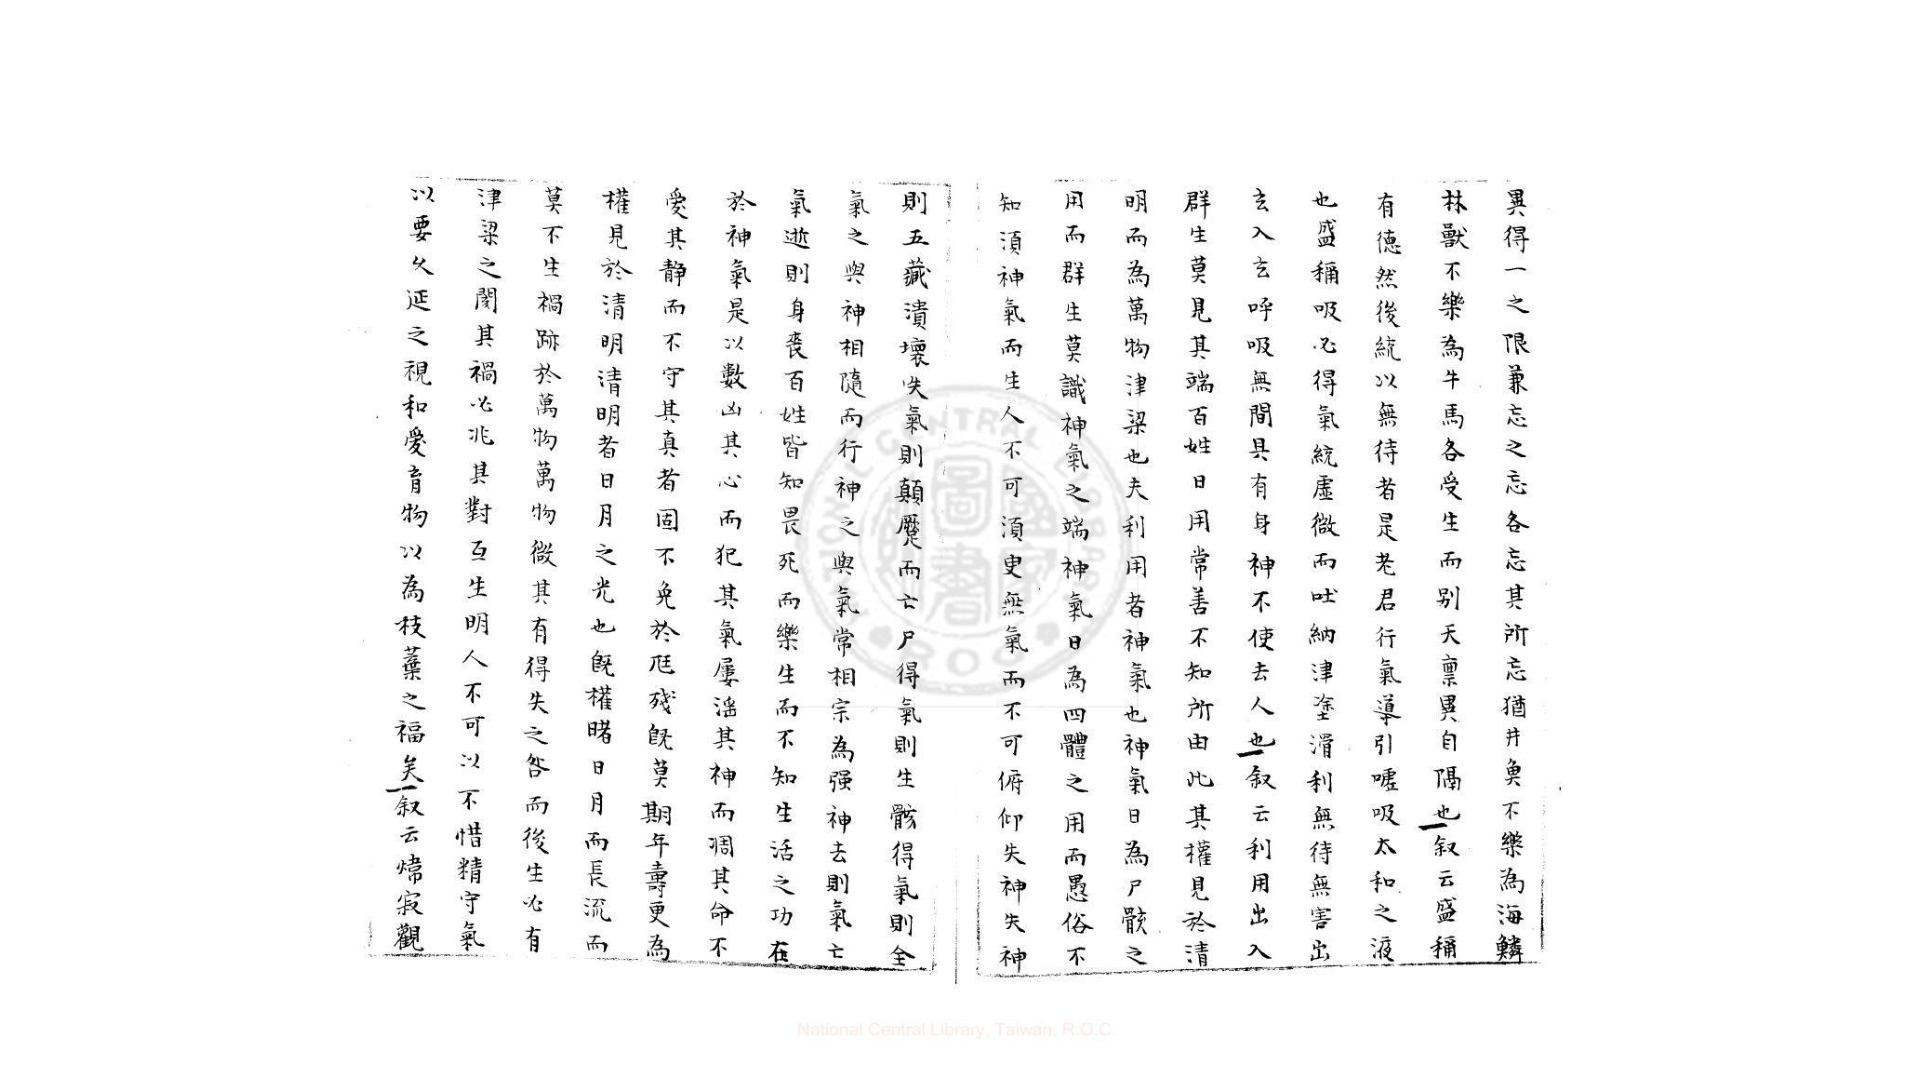 異得一之限兼忘之忘各忘其所忘猶井魚不樂為海鱗
林獸不樂為牛馬各受生而別天稟異自隔也叙云盛稱
有德然後統以無待者是老君行氣導引噓吸太和之液
也盛稱吸必得氣統虛微而吐納津塗滑利無待無害出
玄入玄呼吸無間具有身神不使去人也叙云利用出入
群生莫見其端百姓日用常善不知所由此其權見於清
明而為萬物津梁也夫利用者神氣也神氣日為尸骸之
用而群生莫識神氣之端神氣日為四體之用而愚俗不
知湏神氣而生人不可湏臾無氣而不可俯仰失神失神
則五藏潰壞失氣則顛蹷而亡尸得氣則生骸得氣則全
氣之與神相隨而行神之與氣常相宗為强神去則氣亡
氣逝則身喪百姓皆知畏死而樂生而不知生活之功在
於神氣是以數凶其心而犯其氣屢滛其神而凋其命不
愛其静而不守其真者固不免於尫殘旣莫期年壽更為
權見於清明清明者日月之光也旣權曙日月而長流而
莫不生禍跡於萬物萬物微其有得失之咎而後生必有
津梁之閡其禍必兆其對互生明人不可以不惜精守氣
以要久延之視和愛育物以為枝葉之福矣叙云煒寂觀
National Central Library, Taiwan, R.O.C.